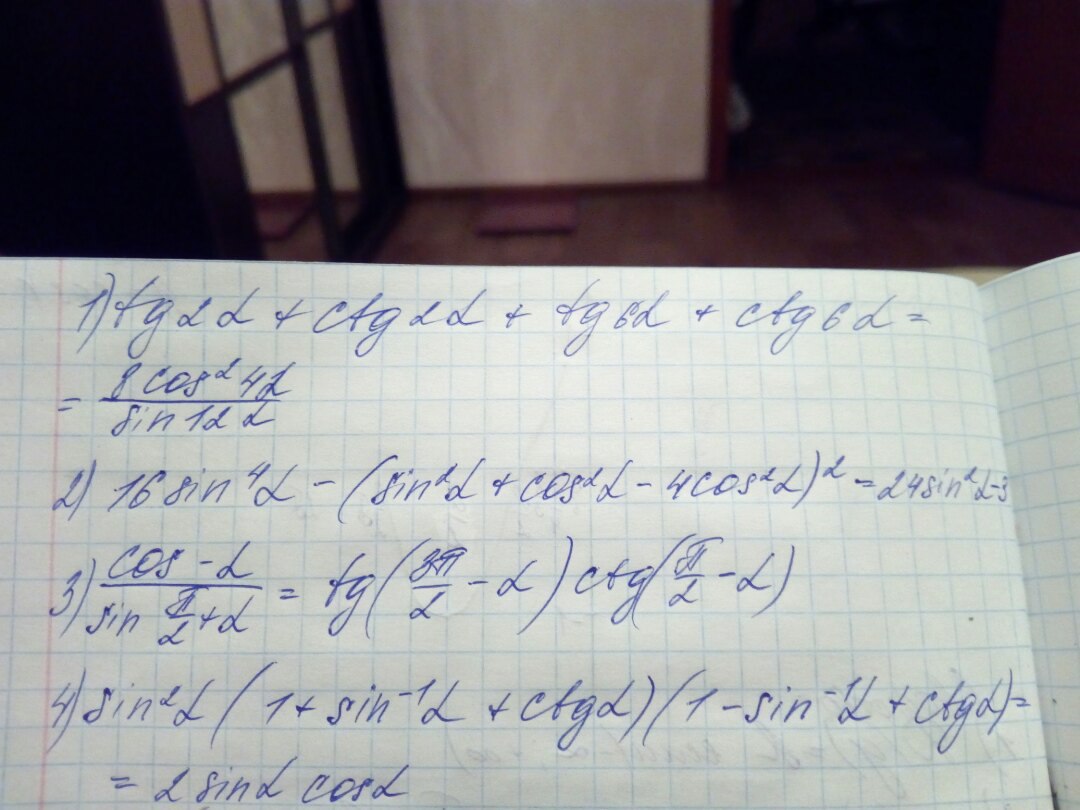 1) tg2α + ctg2α + tg6α + ctg6α =
= 8cos²4α / sin12α
2) 16sin⁴α - (sin²α + cos²α - 4cos²α)² = 24sin²α-9
3) cos -α / sin π/2 + α = tg(3π/2 - α) ctg(π/2 - α)
4) sin²α (1 + sin⁻¹α + ctgα)(1 - sin⁻¹α + ctgα) =
= 2 sinα cosα